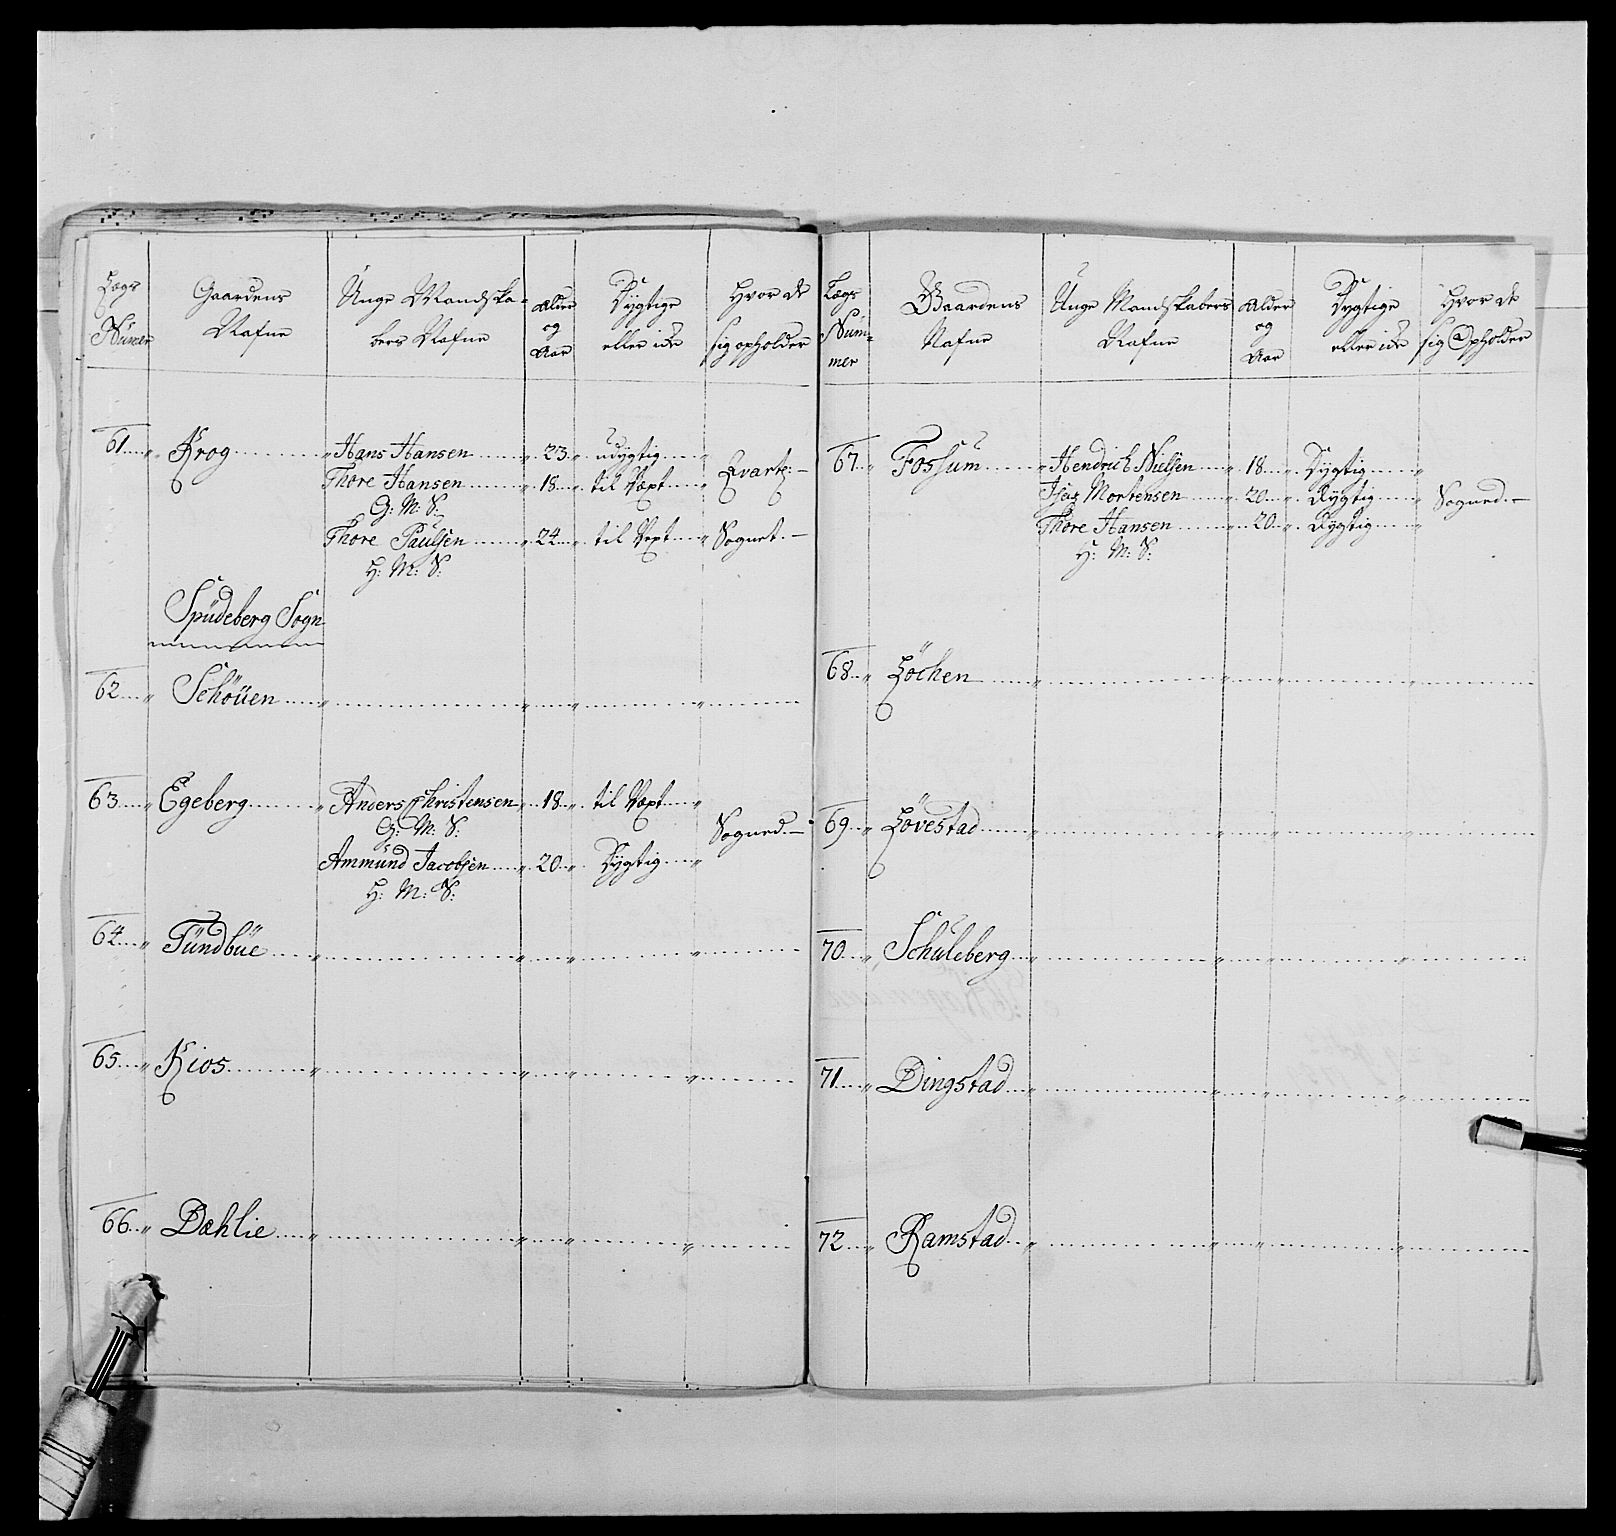 Lægs Nümer | Gaardens Nafne | Unge Mandska-bers Nafne | Alder og Aar | Dygtige eller icke | Hvor de sig opholder
61 Krog Hans Hansen 23 udygtig
Thore Hansen 18 til Vext Qvart:
G: M: S:
Thore Paulsen 24 til Vext Sognet
H: M: S:
Spüdeberg Sogn
62 Schöüen
63 Egeberg Anders Christensen 18 til Vext
G: M: S: Sogned
Ammünd Jacobsen 20 Dygtig
H: M: S:
64 Tündbüe
65 Kios
66 Dæhlie
Lægs Nüm-mer | Gaardens Nafne | Unge Mandskabers Nafne | Alder og Aar | Dygtige eller icke | Hvor de sig Opholder
67 Fossum Hendrich Nielsen 18 Dygtig
Isaz Mortensen 20 Dygtig Sogned
Thore Hansen 20 Dygtig
H: M: S:
68 Löchen
69 Lövestad
70 Schuleberg
71 Dingstad
72 Ramstad